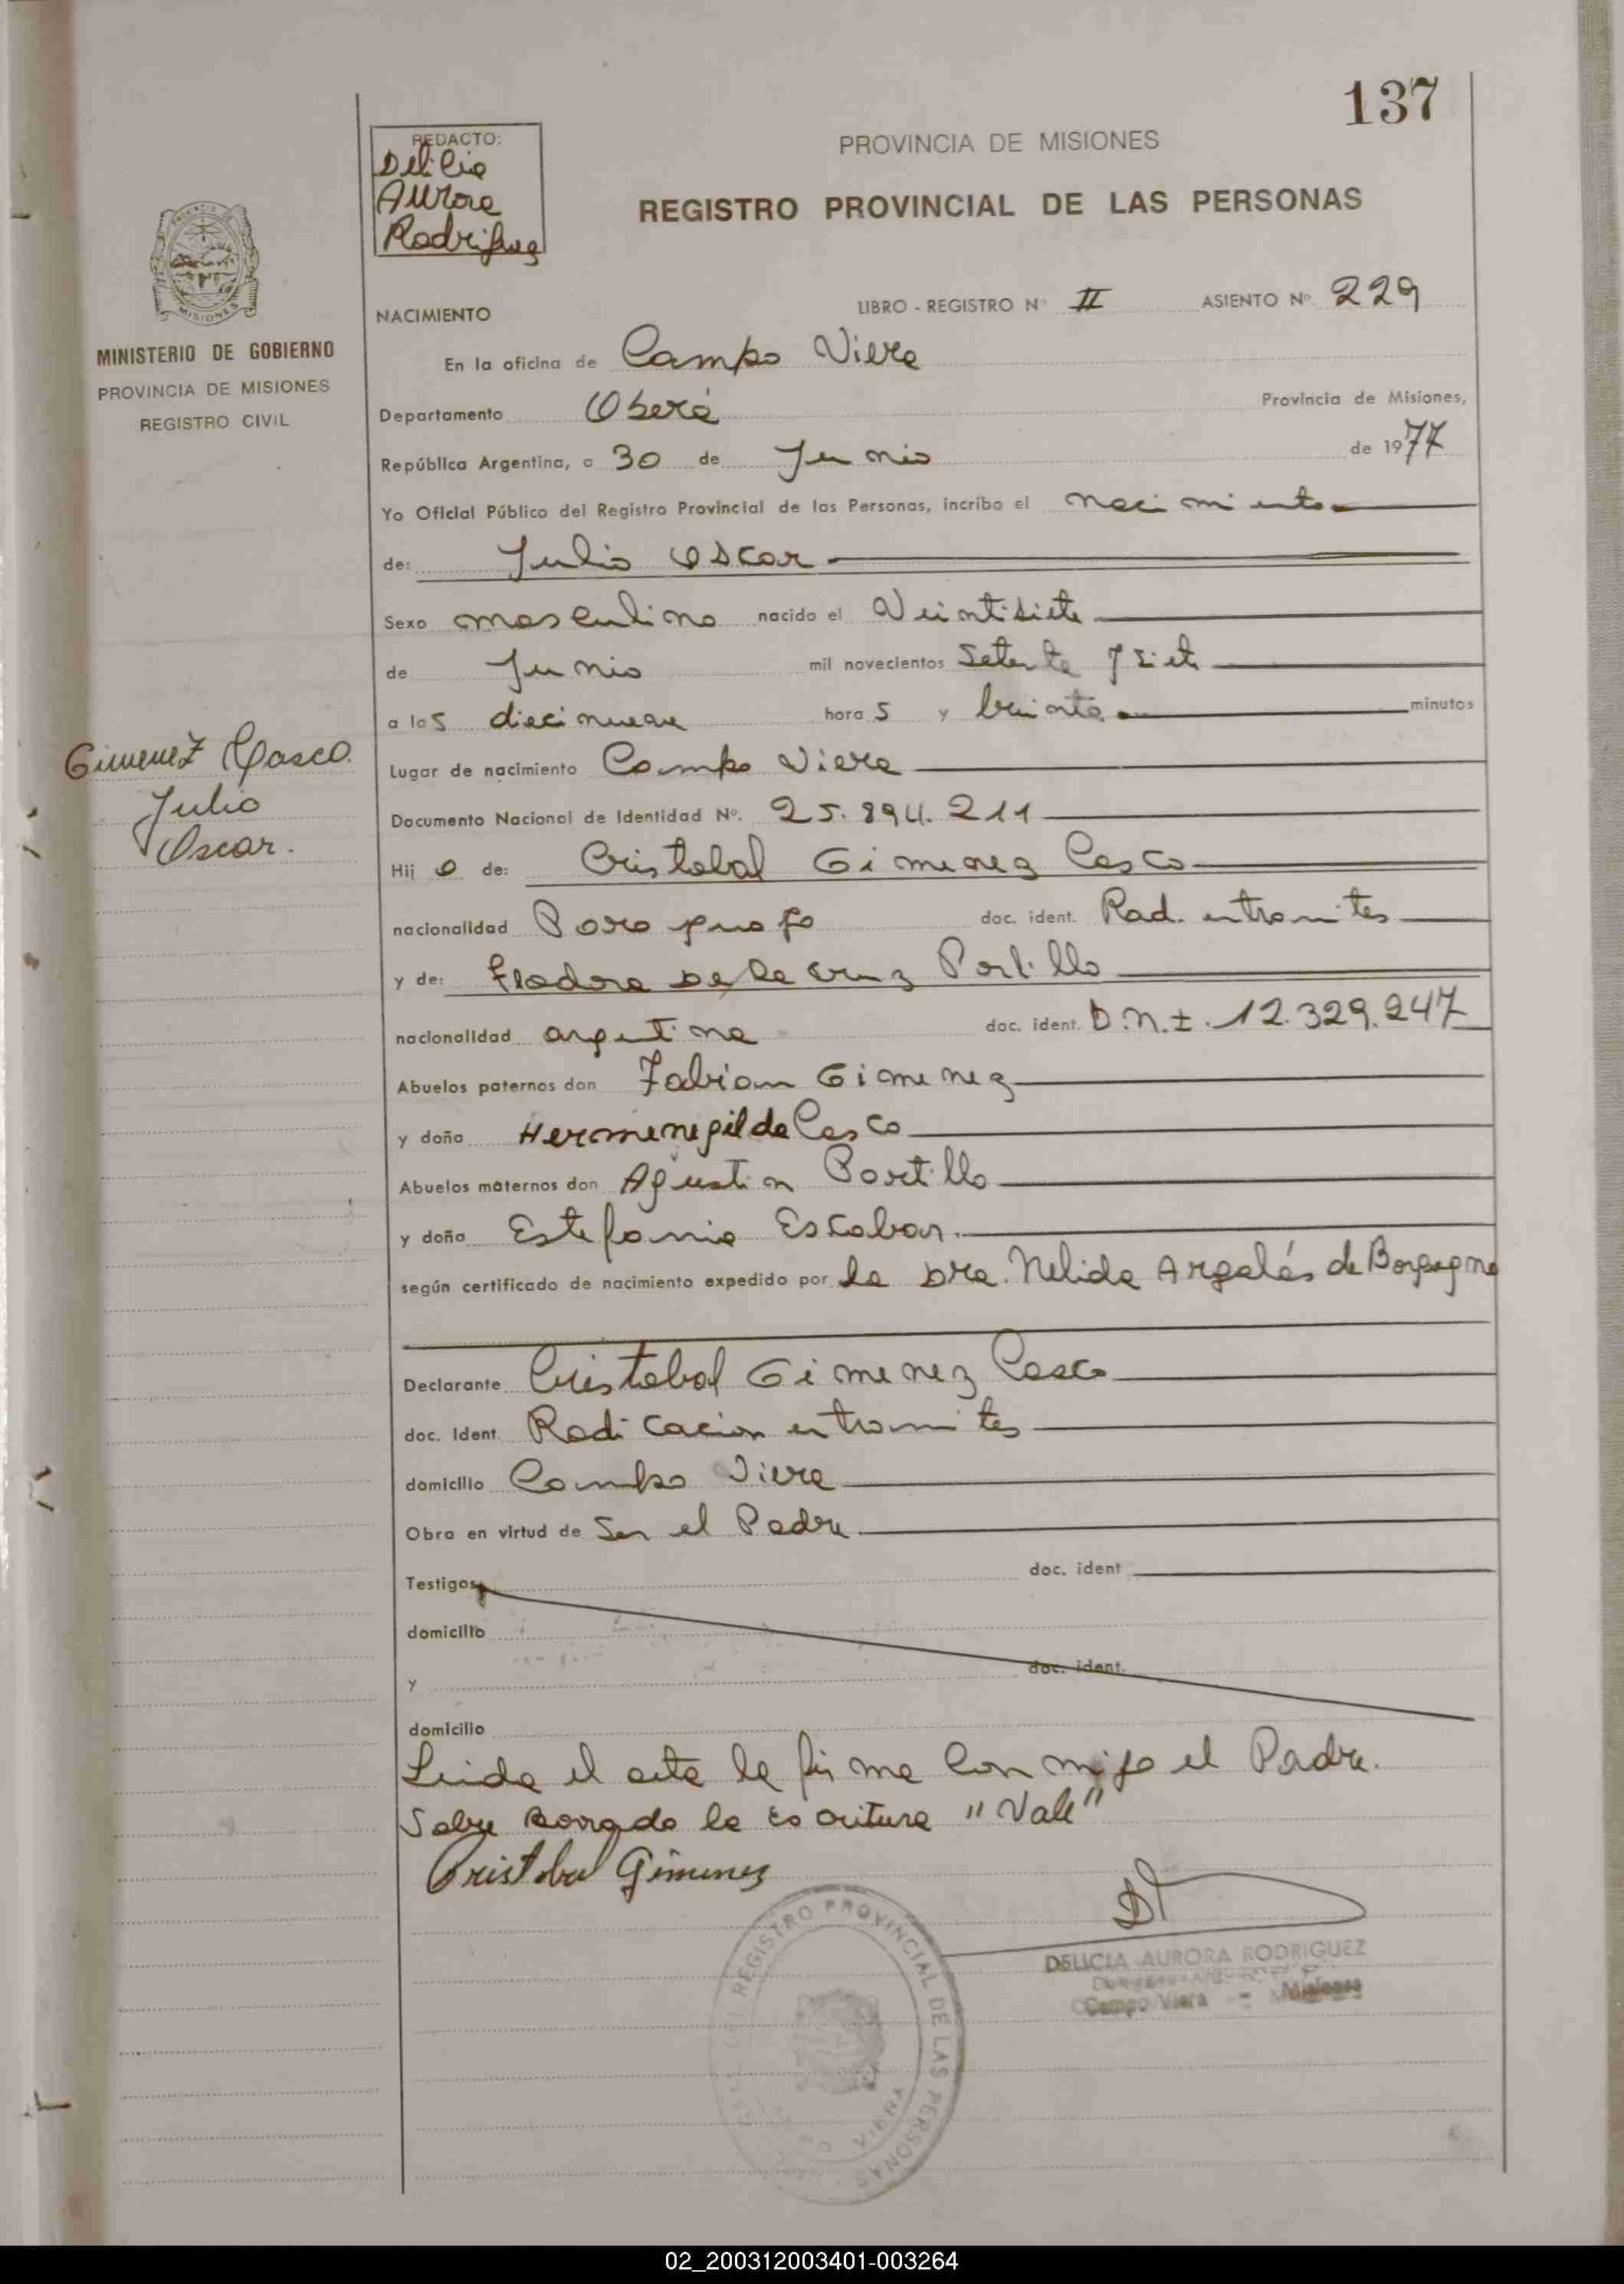 137
REDACTO:
Delicia
Aurora
Rodriguez
PROVINCIA DE MISIONES
REGISTRO PROVINCIAL DE LAS PERSONAS
MINISTERIO DE GOBIERNO
PROVINCIA DE MISIONES
REGISTRO CIVIL
NACIMIENTO LIBRO - REGISTRO Nº II ASIENTO Nº 229
En la oficina de Campo Viera
Departamento Oberá Provincia de Misiones,
República Argentina, a 30 de Junio de 1977
Yo Oficial Público del Registro Provincial de las Personas, incribo el nacimiento
de: Julio Oscar
Sexo masculino nacido el Veintisiete
de Junio mil novecientos Setenta y Siete
a las diecinueve horas y treinta minutos
Gimenez Casco
Julio
Oscar.
Lugar de nacimiento Campo Viera
Documento Nacional de Identidad Nº. 25.894.211
Hijo de: Cristobal Gimenez Casco
nacionalidad Paraguayo doc. ident. Rad. en tramites
y de: Eladora De la Cruz Portillo
nacionalidad argentina doc. ident. D.N.I. 12.329.247
Abuelos paternos don Fabian Gimenez
y doña Hermenegilda Casco
Abuelos maternos don Agustin Portillo
y doña Estefania Escobar.
según certificado de nacimiento expedido por la Dra. Nelida Argalás de Borgogno
Declarante Cristobal Gimenez Casco
doc. Ident. Radicacion en tramites
domicilio Campo Viera
Obra en virtud de Ser el Padre
Testigos doc. ident
domicilio
y doc. ident.
domicilio
Leida el acta la firma conmigo el Padre.
Sobre Borrado la escritura "Vale"
Cristobal Gimenez
REGISTRO PROVINCIAL DE LAS PERSONAS
DELICIA AURORA RODRIGUEZ
Campo Viera - Misiones
02_200312003401-003264